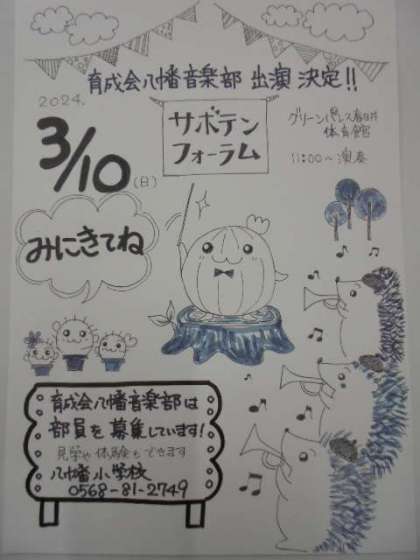 育成会八幡音楽部 出演 決定!!
2024.
3/10(日)
サボテン
フォーラム
グリーンパレス春日井
体育館
11:00～演奏
みにきてね
育成会八幡音楽部は
部員を募集しています!
見学や体験もできます
八幡小学校
0568-81-2749